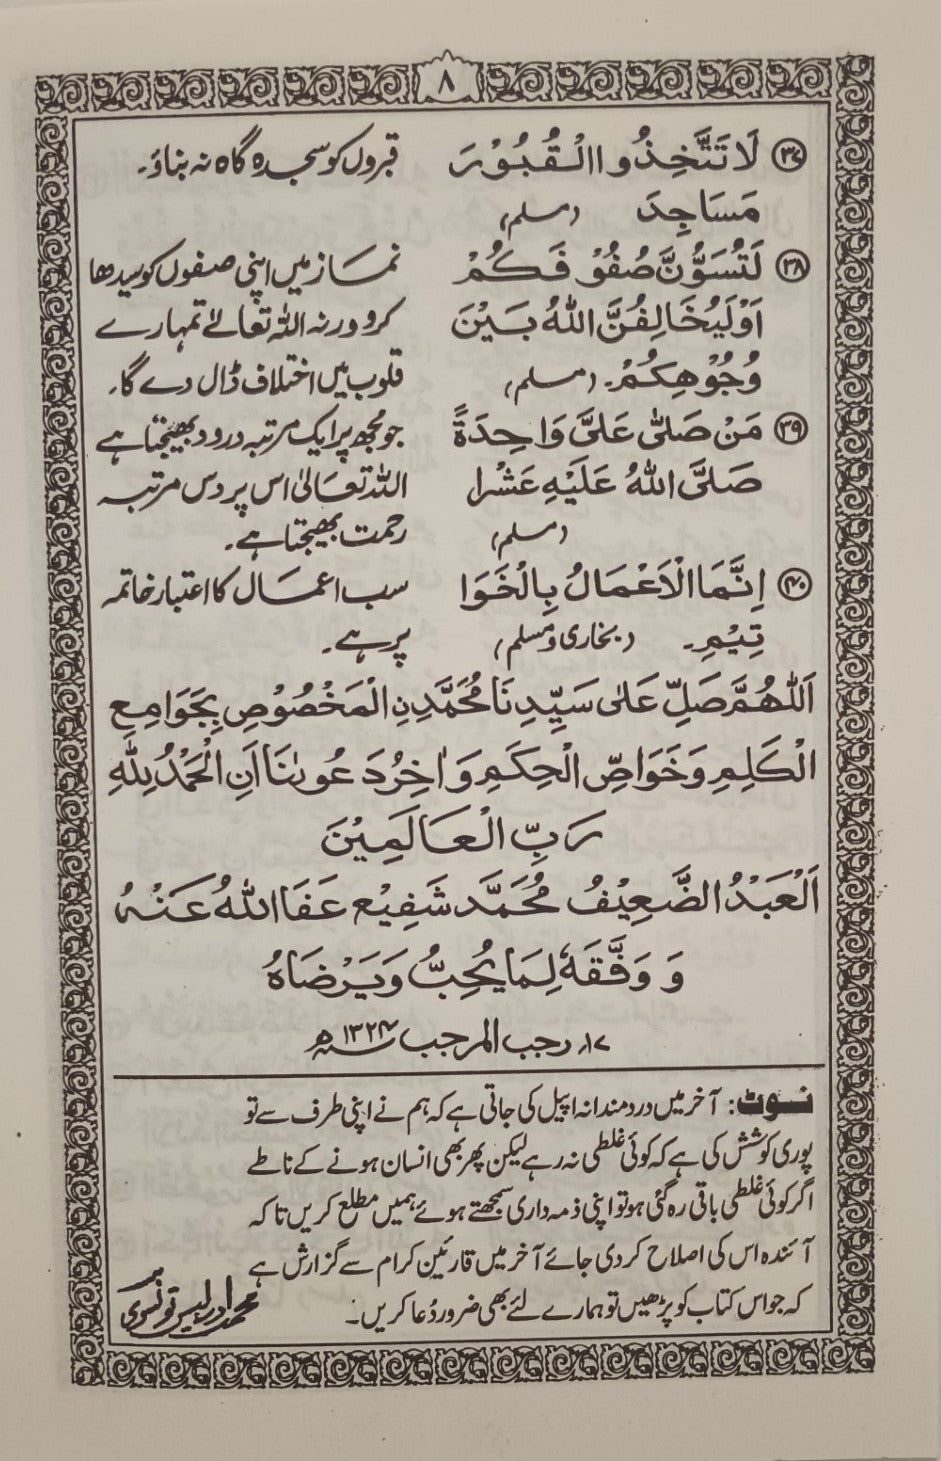 ۸
۳۷ لَا تَتَّخِذُوا الْقُبُوْرَ
مَسَاجِدَ (مسلم)
قبروں کو سجدہ گاہ نہ بناؤ۔
۳۸ لَتُسَوُّنَّ صُفُوْفَكُمْ
اَوْلَيُخَالِفَنَّ اللّٰهُ بَيْنَ
وُجُوْهِكُمْ۔ (مسلم)
نماز میں اپنی صفوں کو سیدھا
کرو ورنہ اللہ تعالےٰ تمہارے
قلوب میں اختلاف ڈال دے گا۔
۳۹ مَنْ صَلّٰى عَلَیَّ وَاحِدَةً
صَلَّى اللّٰهُ عَلَيْهِ عَشْرا
(مسلم)
جو مُجھ پر ایک مرتبہ درود بھیجتا ہے
اللہ تعالیٰ اس پر دس مرتبہ
رحمت بھیجتا ہے۔
۴۰ اِنَّمَا الْاَعْمَالُ بِالْخَوَا
تِيْمِ۔ (بخاری و مسلم)
سب اعمال کا اعتبار خاتمہ
پر ہے۔
اَللّٰهُمَّ صَلِّ عَلٰى سَيِّدِنَا مُحَمَّدِنِ الْمَخْصُوْصِ بِجَوَامِعِ
الْكَلِمِ وَخَوَاصِّ الْحِكَمِ وَاٰخِرُدَعُوىٰنَا اَنِ الْحَمْدُ لِلّٰهِ
رَبِّ الْعَالَمِيْنَ
اَلْعَبْدُ الضَّعِيْفُ مُحَمَّد شَفِيْع عَفَا اللّٰهُ عَنْهُ
وَ وَفَّقَهٗ لِمَا يُحِبُّ وَيَرْضَاهُ
۱۷؍ رجب المرجب ۱۳۴۴ھ
نوٹ: آخر میں دردمندانہ اپیل کی جاتی ہے کہ ہم نے اپنی طرف سے تو
پوری کوشش کی ہے کہ کوئی غلطی نہ رہے لیکن پھر بھی انسان ہونے کے ناطے
اگر کوئی غلطی باقی رہ گئی ہو تو اپنی ذمہ داری سمجھتے ہوئے ہمیں مطلع کریں تاکہ
آئندہ اس کی اصلاح کردی جائے آخر میں قارئین کرام سے گزارش ہے
کہ جو اس کتاب کو پڑھیں تو ہمارے لئے بھی ضرور دُعا کریں۔
محمد ادریس تونسوی